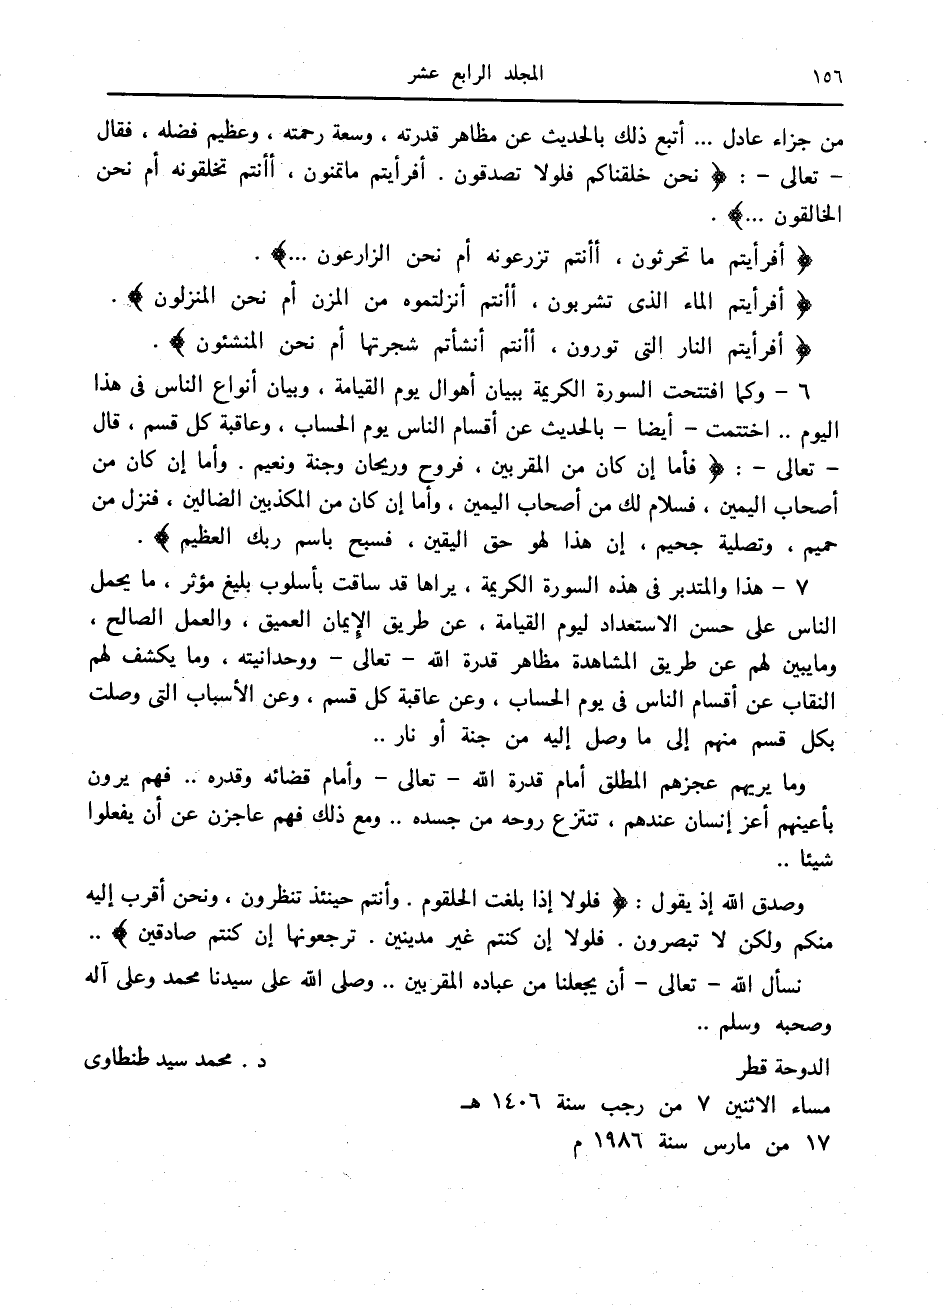 ١٥٦ المجلد الرابع عشر
من جزاء عادل ... أتبع ذلك بالحديث عن مظاهر قدرته ، وسعة رحمته ، وعظيم فضله ، فقال
- تعالى - : ﴿ نحن خلقناكم فلولا تصدقون . أفرأيتم ماتمنون ، أأنتم تخلقونه أم نحن
الخالقون ...﴾ .
﴿ أفرأيتم ما تحرثون ، أأنتم تزرعونه أم نحن الزارعون ...﴾ .
﴿ أفرأيتم الماء الذى تشربون ، أأنتم أنزلتموه من المزن أم نحن المنزلون ﴾ .
﴿ أفرأيتم النار التى تورون ، أأنتم أنشأتم شجرتها أم نحن المنشئون ﴾ .
٦ - وكما افتتحت السورة الكريمة ببيان أهوال يوم القيامة ، وبيان أنواع الناس فى هذا
اليوم .. اختتمت - أيضا - بالحديث عن أقسام الناس يوم الحساب ، وعاقبة كل قسم ، قال
- تعالى - : ﴿ فأما إن كان من المقربين ، فروح وريحان وجنة ونعيم . وأما إن كان من
أصحاب اليمين ، فسلام لك من أصحاب اليمين ، وأما إن كان من المكذبين الضالين ، فنزل من
حميم ، وتصلية جحيم ، إن هذا لهو حق اليقين ، فسبح باسم ربك العظيم ﴾ .
٧ - هذا والمتدبر فى هذه السورة الكريمة ، يراها قد ساقت بأسلوب بليغ مؤثر ، ما يحمل
الناس على حسن الاستعداد ليوم القيامة ، عن طريق الإيمان العميق ، والعمل الصالح ،
ومايبين لهم عن طريق المشاهدة مظاهر قدرة الله - تعالى - ووحدانيته ، وما يكشف لهم
النقاب عن أقسام الناس فى يوم الحساب ، وعن عاقبة كل قسم ، وعن الأسباب التى وصلت
بكل قسم منهم إلى ما وصل إليه من جنة أو نار ..
وما يريهم عجزهم المطلق أمام قدرة الله - تعالى - وأمام قضائه وقدره .. فهم يرون
بأعينهم أعز إنسان عندهم ، تنتزع روحه من جسده .. ومع ذلك فهم عاجزن عن أن يفعلوا
شيئا ..
وصدق الله إذ يقول : ﴿ فلولا إذا بلغت الحلقوم . وأنتم حينئذ تنظرون ، ونحن أقرب إليه
منكم ولكن لا تبصرون . فلولا إن كنتم غير مدينين . ترجعونها إن كنتم صادقين ﴾ ..
نسأل الله - تعالى - أن يجعلنا من عباده المقربين .. وصلى الله على سيدنا محمد وعلى آله
وصحبه وسلم ..
الدوحة قطر د . محمد سيد طنطاوى
مساء الاثنين ٧ من رجب سنة ١٤٠٦ هـ
١٧ من مارس سنة ١٩٨٦ م